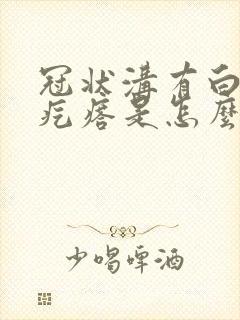 冠状溝有白
疙瘩是怎麼
少喝啤酒